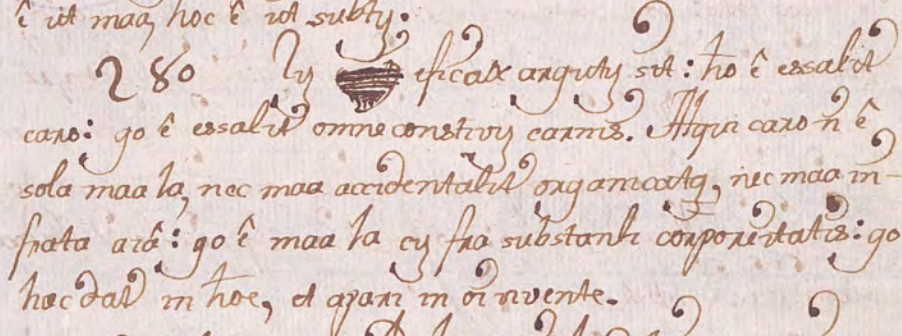 ê ut maa, hoc ê ut subtũ.
280 efficax argutũ sit: ho ê essalit
caro: go ê essalit omne constivũ carnis. Atqui caro ñ ê
sola maa la, nec maa accidentalit organicata, nec maa in-
frata aiâ: go ê maa la cũ fra substanli corporeitatis: go
hæc dat in hoe, et apari in oi vivente.